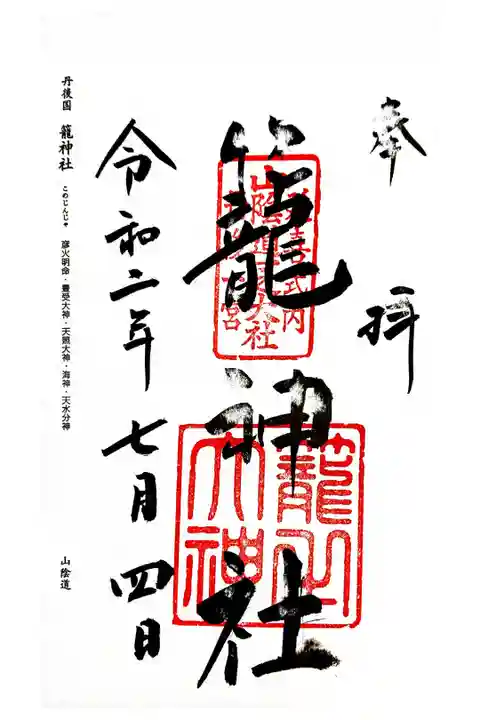 奉拝
籠神社
延喜式内
山陰道一宮大社
籠之
大神
令和二年七月四日
丹後国 籠神社 このじんじゃ 彦火明命・豊受大神・天照大神・海神・天水分神 山陰道